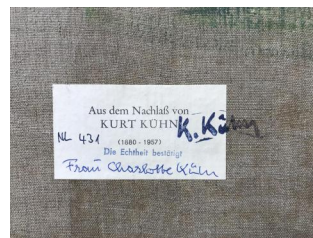 Aus dem Nachlaß von
KURT KÜHN K. Kühn
NL 431
(1880 - 1957)
Die Echtheit bestätigt
Frau Charlotte Kühn